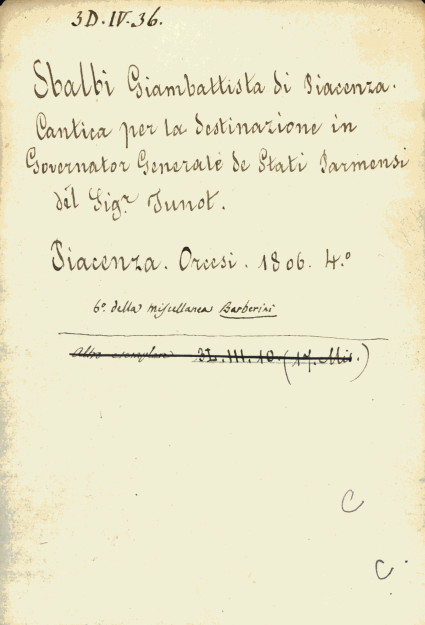 3D.IV.36.
Sbalbi Giambattista di Piacenza.
Cantica per la destinazione in
Governator Generale de Stati Parmensi
del Sigr. Junot.
Piacenza. Orcesi. 1806. 4.o
6o. della miscellanea Barberini
Altro esemplare 3L.III.10. (17. Mis.)
C
C